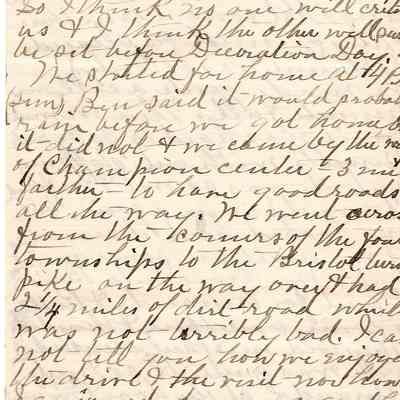 So I think no one will criti
us & I think the other will
be set before Decoration Day.
We started for home at 4 P
(sun), Ben said it would probab
rain before we got home b
it did not & we came by the w
of Champion center - 3 mi
farther - to have good roads
all the way. We went across
from the corners of the four
townships to the Bristol turn
pike on the way over & had
2 1/4 miles of dirt road which
was not terribly bad. I ca
not tell you how we enjoyed
the drive & the visit nor how